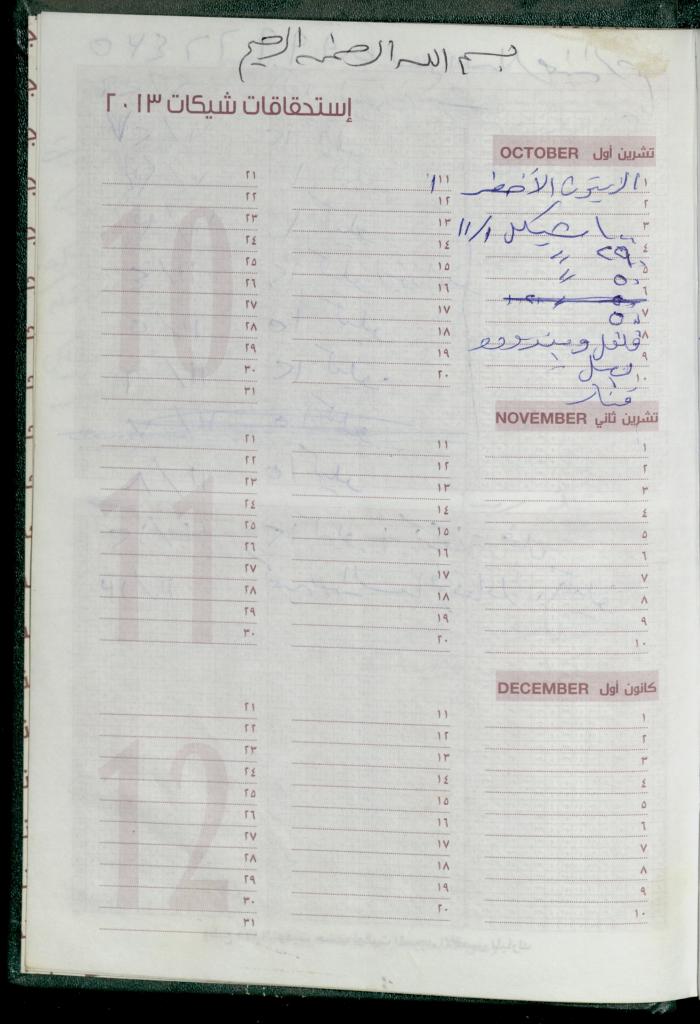 بسم الله الرحمن الرحيم
إستحقاقات شيكات ٢٠١٣
تشرين أول OCTOBER
١ الأخضر
٢
٣ شيكل ١١/١
٤ ٢٩ "
٥ ٥٠ "
٦
٧ ٥٠
٨ فلفل
٩ بصل
١٠
١١
١٢
١٣
١٤
١٥
١٦
١٧
١٨
١٩
٢٠
٢١
٢٢
٢٣
٢٤
٢٥
٢٦
٢٧
٢٨
٢٩
٣٠
٣١
10
تشرين ثاني NOVEMBER
١
٢
٣
٤
٥
٦
٧
٨
٩
١٠
١١
١٢
١٣
١٤
١٥
١٦
١٧
١٨
١٩
٢٠
٢١
٢٢
٢٣
٢٤
٢٥
٢٦
٢٧
٢٨
٢٩
٣٠
11
كانون أول DECEMBER
١
٢
٣
٤
٥
٦
٧
٨
٩
١٠
١١
١٢
١٣
١٤
١٥
١٦
١٧
١٨
١٩
٢٠
٢١
٢٢
٢٣
٢٤
٢٥
٢٦
٢٧
٢٨
٢٩
٣٠
٣١
12